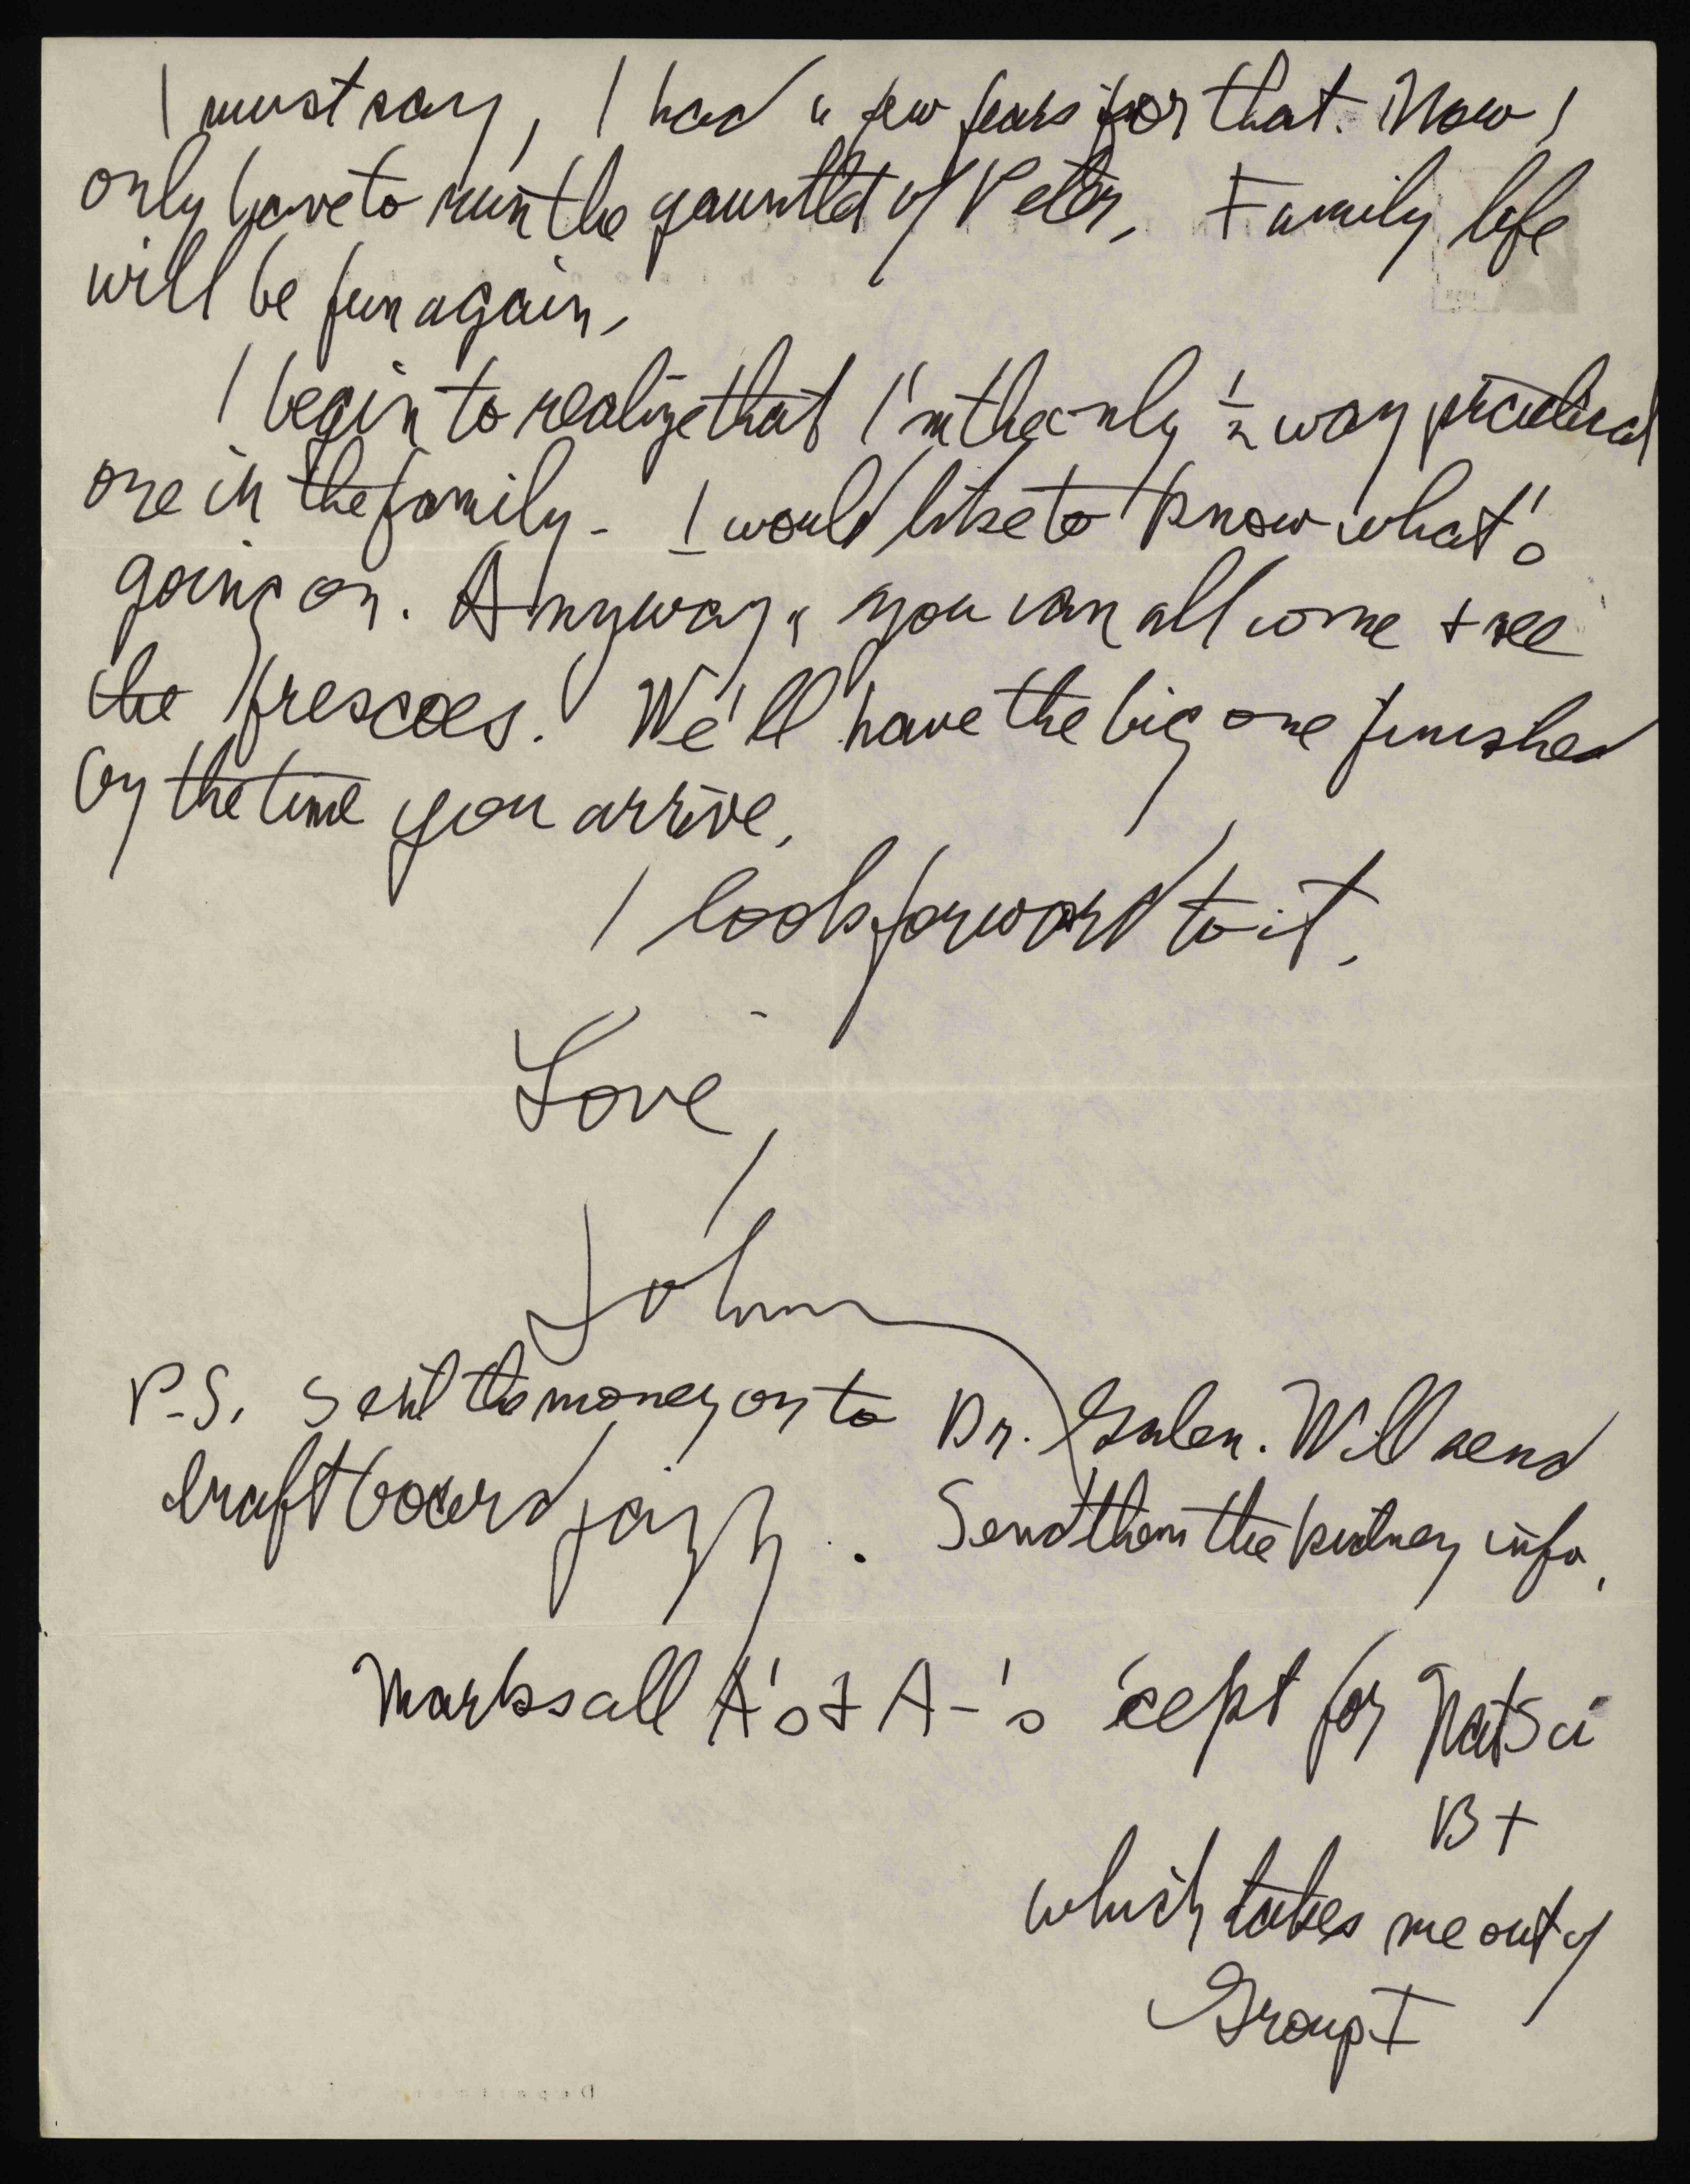 I must say, I had a few fears for that. Now I
only have to run the gauntlet of Peter. Family life
will be fun again.
I begin to realize that I'm the only ½ way practical
one in the family - I would like to know what's
going on. Anyway, you can all come + see
the frescoes. We'll have the big one finished
by the time you arrive.
I look forward to it.
Love,
John
P.S. Sent the money on to Dr. Galen. Will send
draft board jazz. Send them the kidney info.
Marks all A's + A-'s 'cept for Nat Sci
B+
which takes me out of
Group I